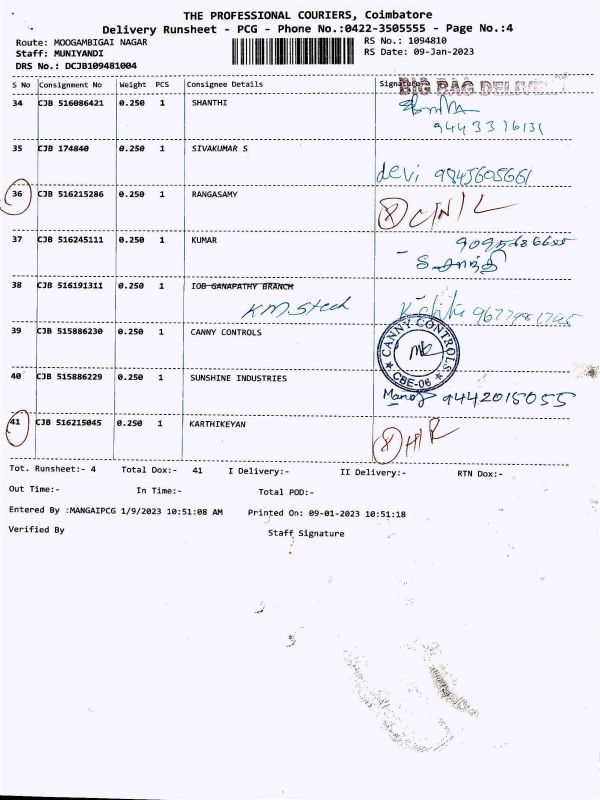 THE PROFESSIONAL COURIERS, Coimbatore
Delivery Runsheet - PCG - Phone No.:0422-3505555 - Page No.:4
Route: MOOGAMBIGAI NAGAR RS No.: 1094810
Staff: MUNIYANDI RS Date: 09-Jan-2023
DRS No.: DCJB109481004
S No Consignment No Weight PCS Consignee Details Signature BIG BAG DELIVERY
34 CJB 516086421 0.250 1 SHANTHI
9443376131
35 CJB 174840 0.250 1 SIVAKUMAR S
devi 9843605661
36 CJB 516215286 0.250 1 RANGASAMY
C/N/L
37 CJB 516245111 0.250 1 KUMAR
சாந்தி
38 CJB 516191311 0.250 1 IOB GANAPATHY BRANCH
KM Steel
39 CJB 515886230 0.250 1 CANNY CONTROLS
CANNY CONTROLS
CBE-06
40 CJB 515886229 0.250 1 SUNSHINE INDUSTRIES
Manoj 9442015055
41 CJB 516215045 0.250 1 KARTHIKEYAN
H/R
Tot. Runsheet:- 4 Total Dox:- 41 I Delivery:- II Delivery:- RTN Dox:-
Out Time:- In Time:- Total POD:-
Entered By :MANGAIPCG 1/9/2023 10:51:08 AM Printed On: 09-01-2023 10:51:18
Verified By Staff Signature